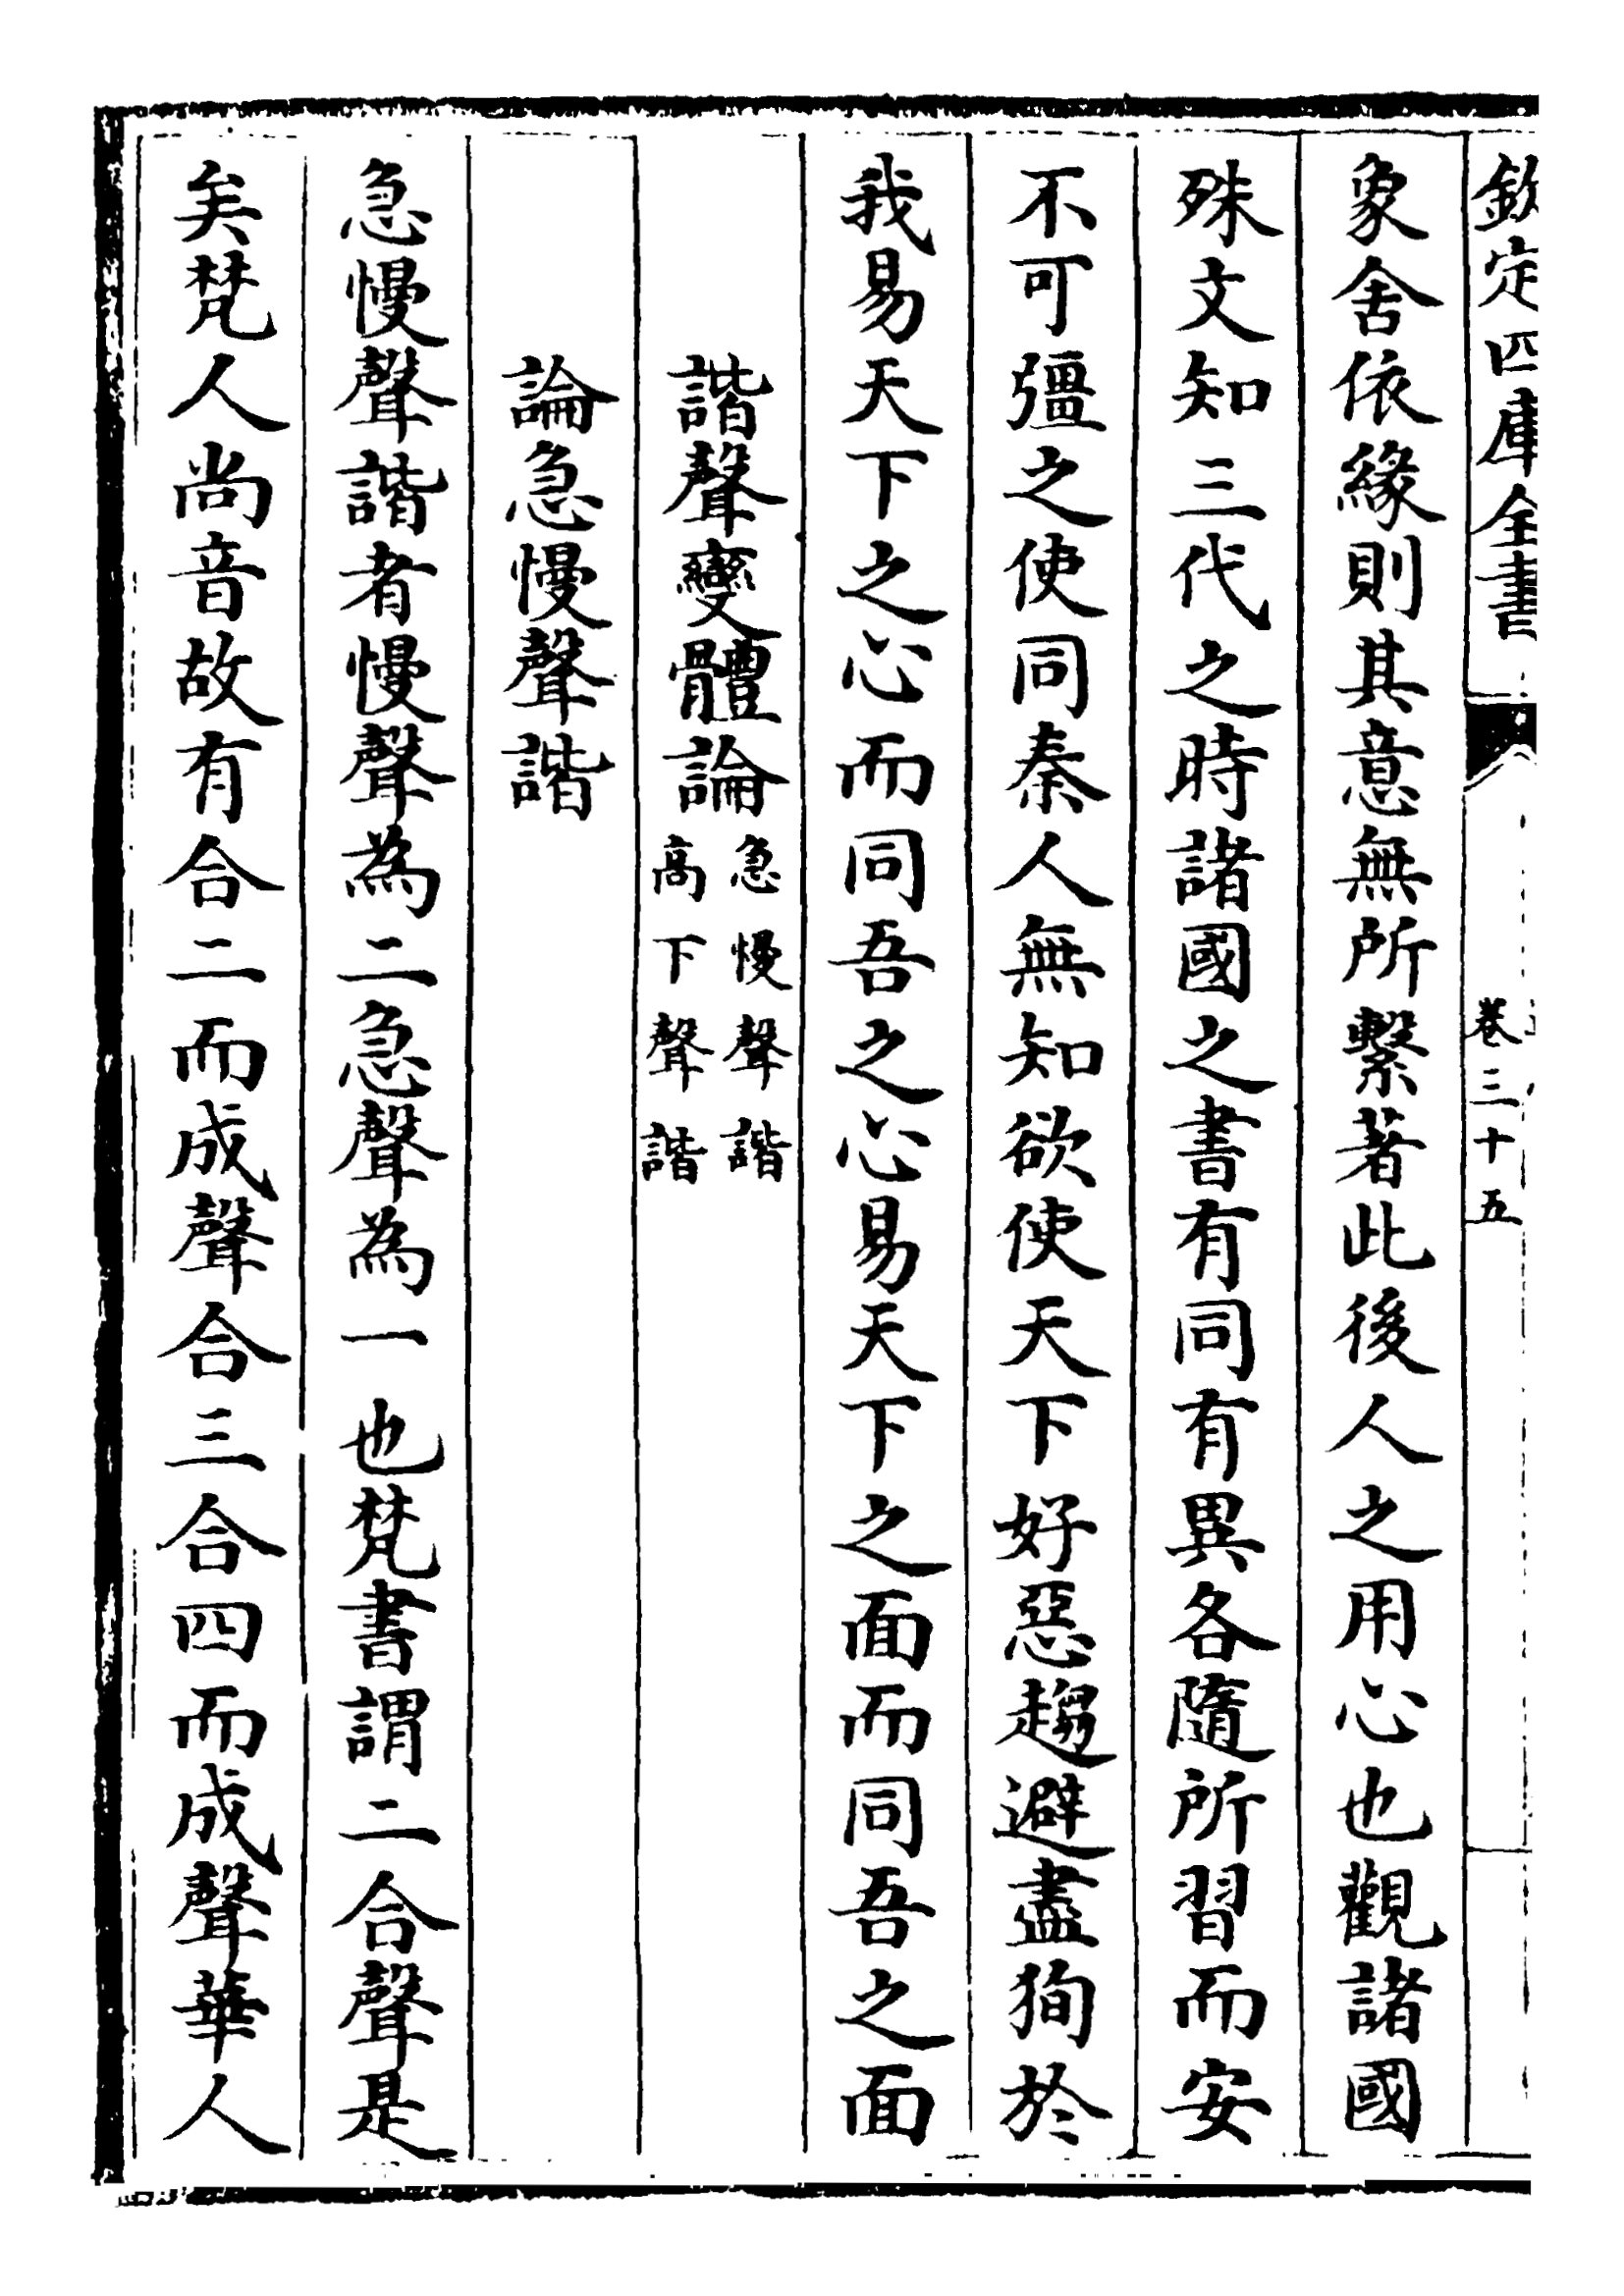 欽定四庫全書
卷三十五
象舍依緣則其意無所繫著此後人之用心也觀諸國
殊文知三代之時諸國之書有同有異各隨所習而安
不可彊之使同秦人無知欲使天下好惡趨避盡狥於
我易天下之心而同吾之心易天下之面而同吾之面
諧聲變體論急慢聲諧高下聲諧
論急慢聲諧
急慢聲諧者慢聲為二急聲為一也梵書謂二合聲是
矣梵人尚音故有合二而成聲合三合四而成聲華人